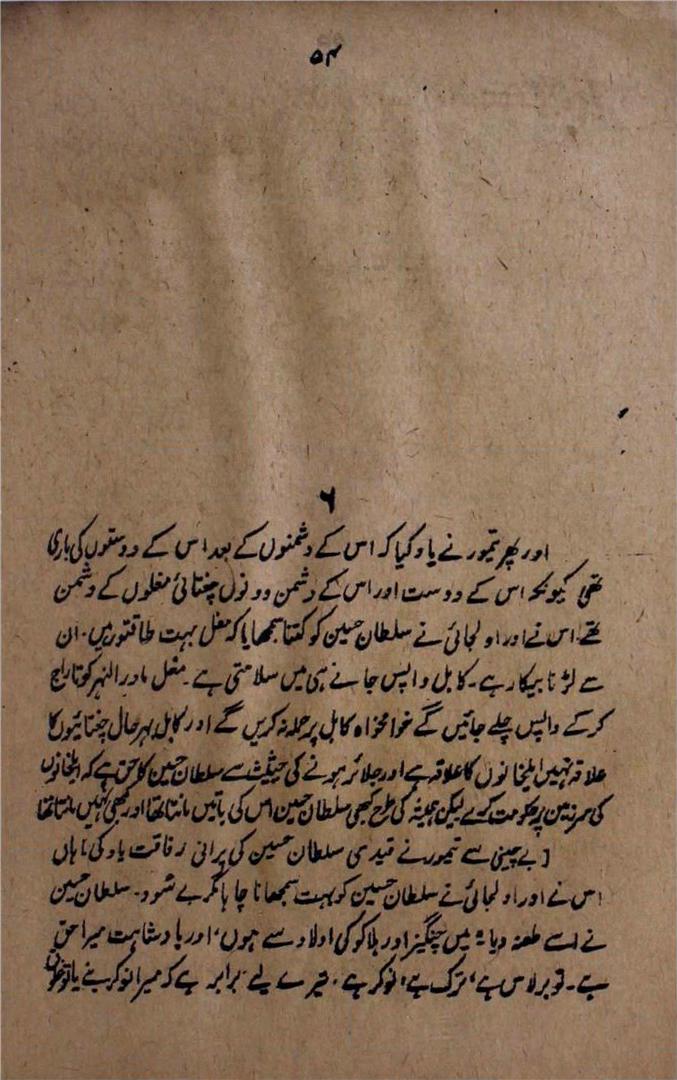 ۵۴
۶
اور پھر تیمور نے یاد کیا کہ اس کے دشمنوں کے بعد اس کے دوستوں کی باری
تھی کیونکہ اس کے دوست اور اس کے دشمن دونوں چغتائی مغلوں کے دشمن
تھے۔ اس نے اور اولجائی نے سلطان حسین کو کتنا سمجھایا کہ مغل بہت طاقتور ہیں۔ ان
سے لڑنا بیکار ہے۔ کابل واپس جانے ہی میں سلامتی ہے۔ مغل ماورالنہر کو تاراج
کر کے واپس چلے جائیں گے خوامخواہ کابل پر حملہ نہ کریں گے اور کابل بہر حال چغتائیوں کا
علاقہ نہیں ایلخانوں کا علاقہ ہے اور جلائر ہونے کی حیثیت سے سلطان حسین کا حق ہے کہ ایلخانوں
کی سرزمین پر حکومت کرے لیکن ہمیشہ کی طرح کبھی سلطان حسین اس کی باتیں مانتا تھا اور کبھی نہیں مانتا تھا
بے چینی سے تیمور نے قیدی سلطان حسین کی پرانی رفاقت یاد کی ہاں
اس نے اور اولجائی نے سلطان حسین کو بہت سمجھانا چاہا مگر بے سُود۔ سلطان حسین
نے اسے طعنہ دیا "میں چنگیز اور ہلاکو کی اولاد سے ہوں، اور بادشاہت میرا حق
ہے۔ تو برلاس ہے، ترک ہے، نوکر ہے، تیرے لیے برابر ہے کہ میرا نوکر بنے یا